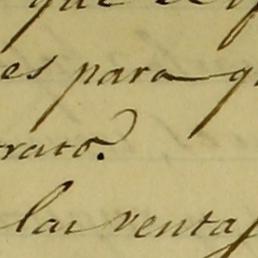 que el
es para q
rato.
las ventas